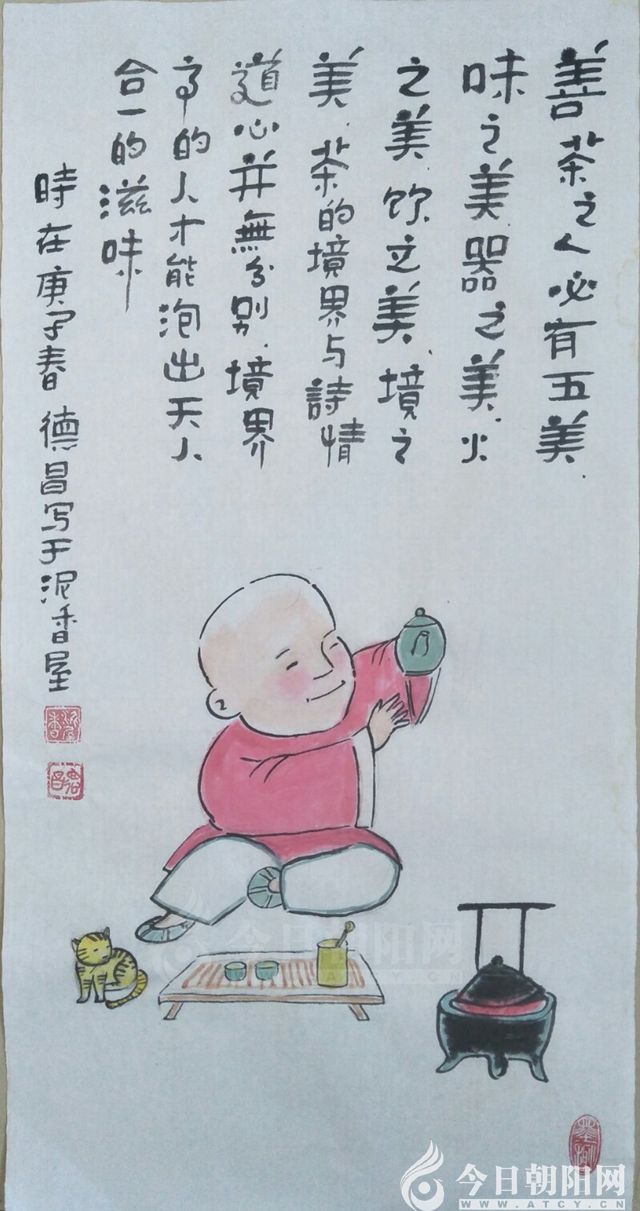 善茶之人必有五美
味之美器之美火
之美饮之美境之
美茶的境界与詩情
道心并無分别境界
高的人才能泡出天人
合一的滋味
時在庚子春德昌写于泥香屋
今日朝阳网
WWW.ATCY.CN
今日朝阳网
WWW.ATCY.CN